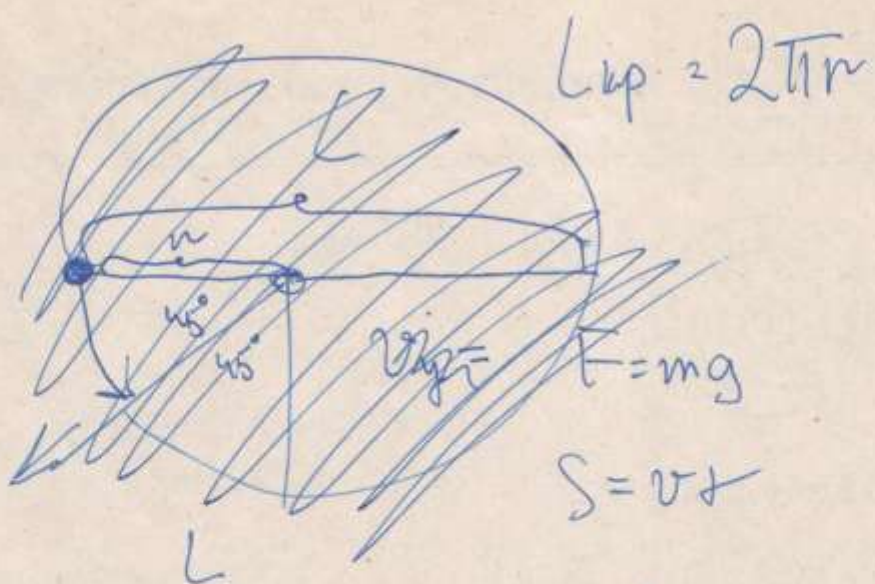 Lкр. = 2πr
L
r
45°
45°
F = mg
S = vt
L